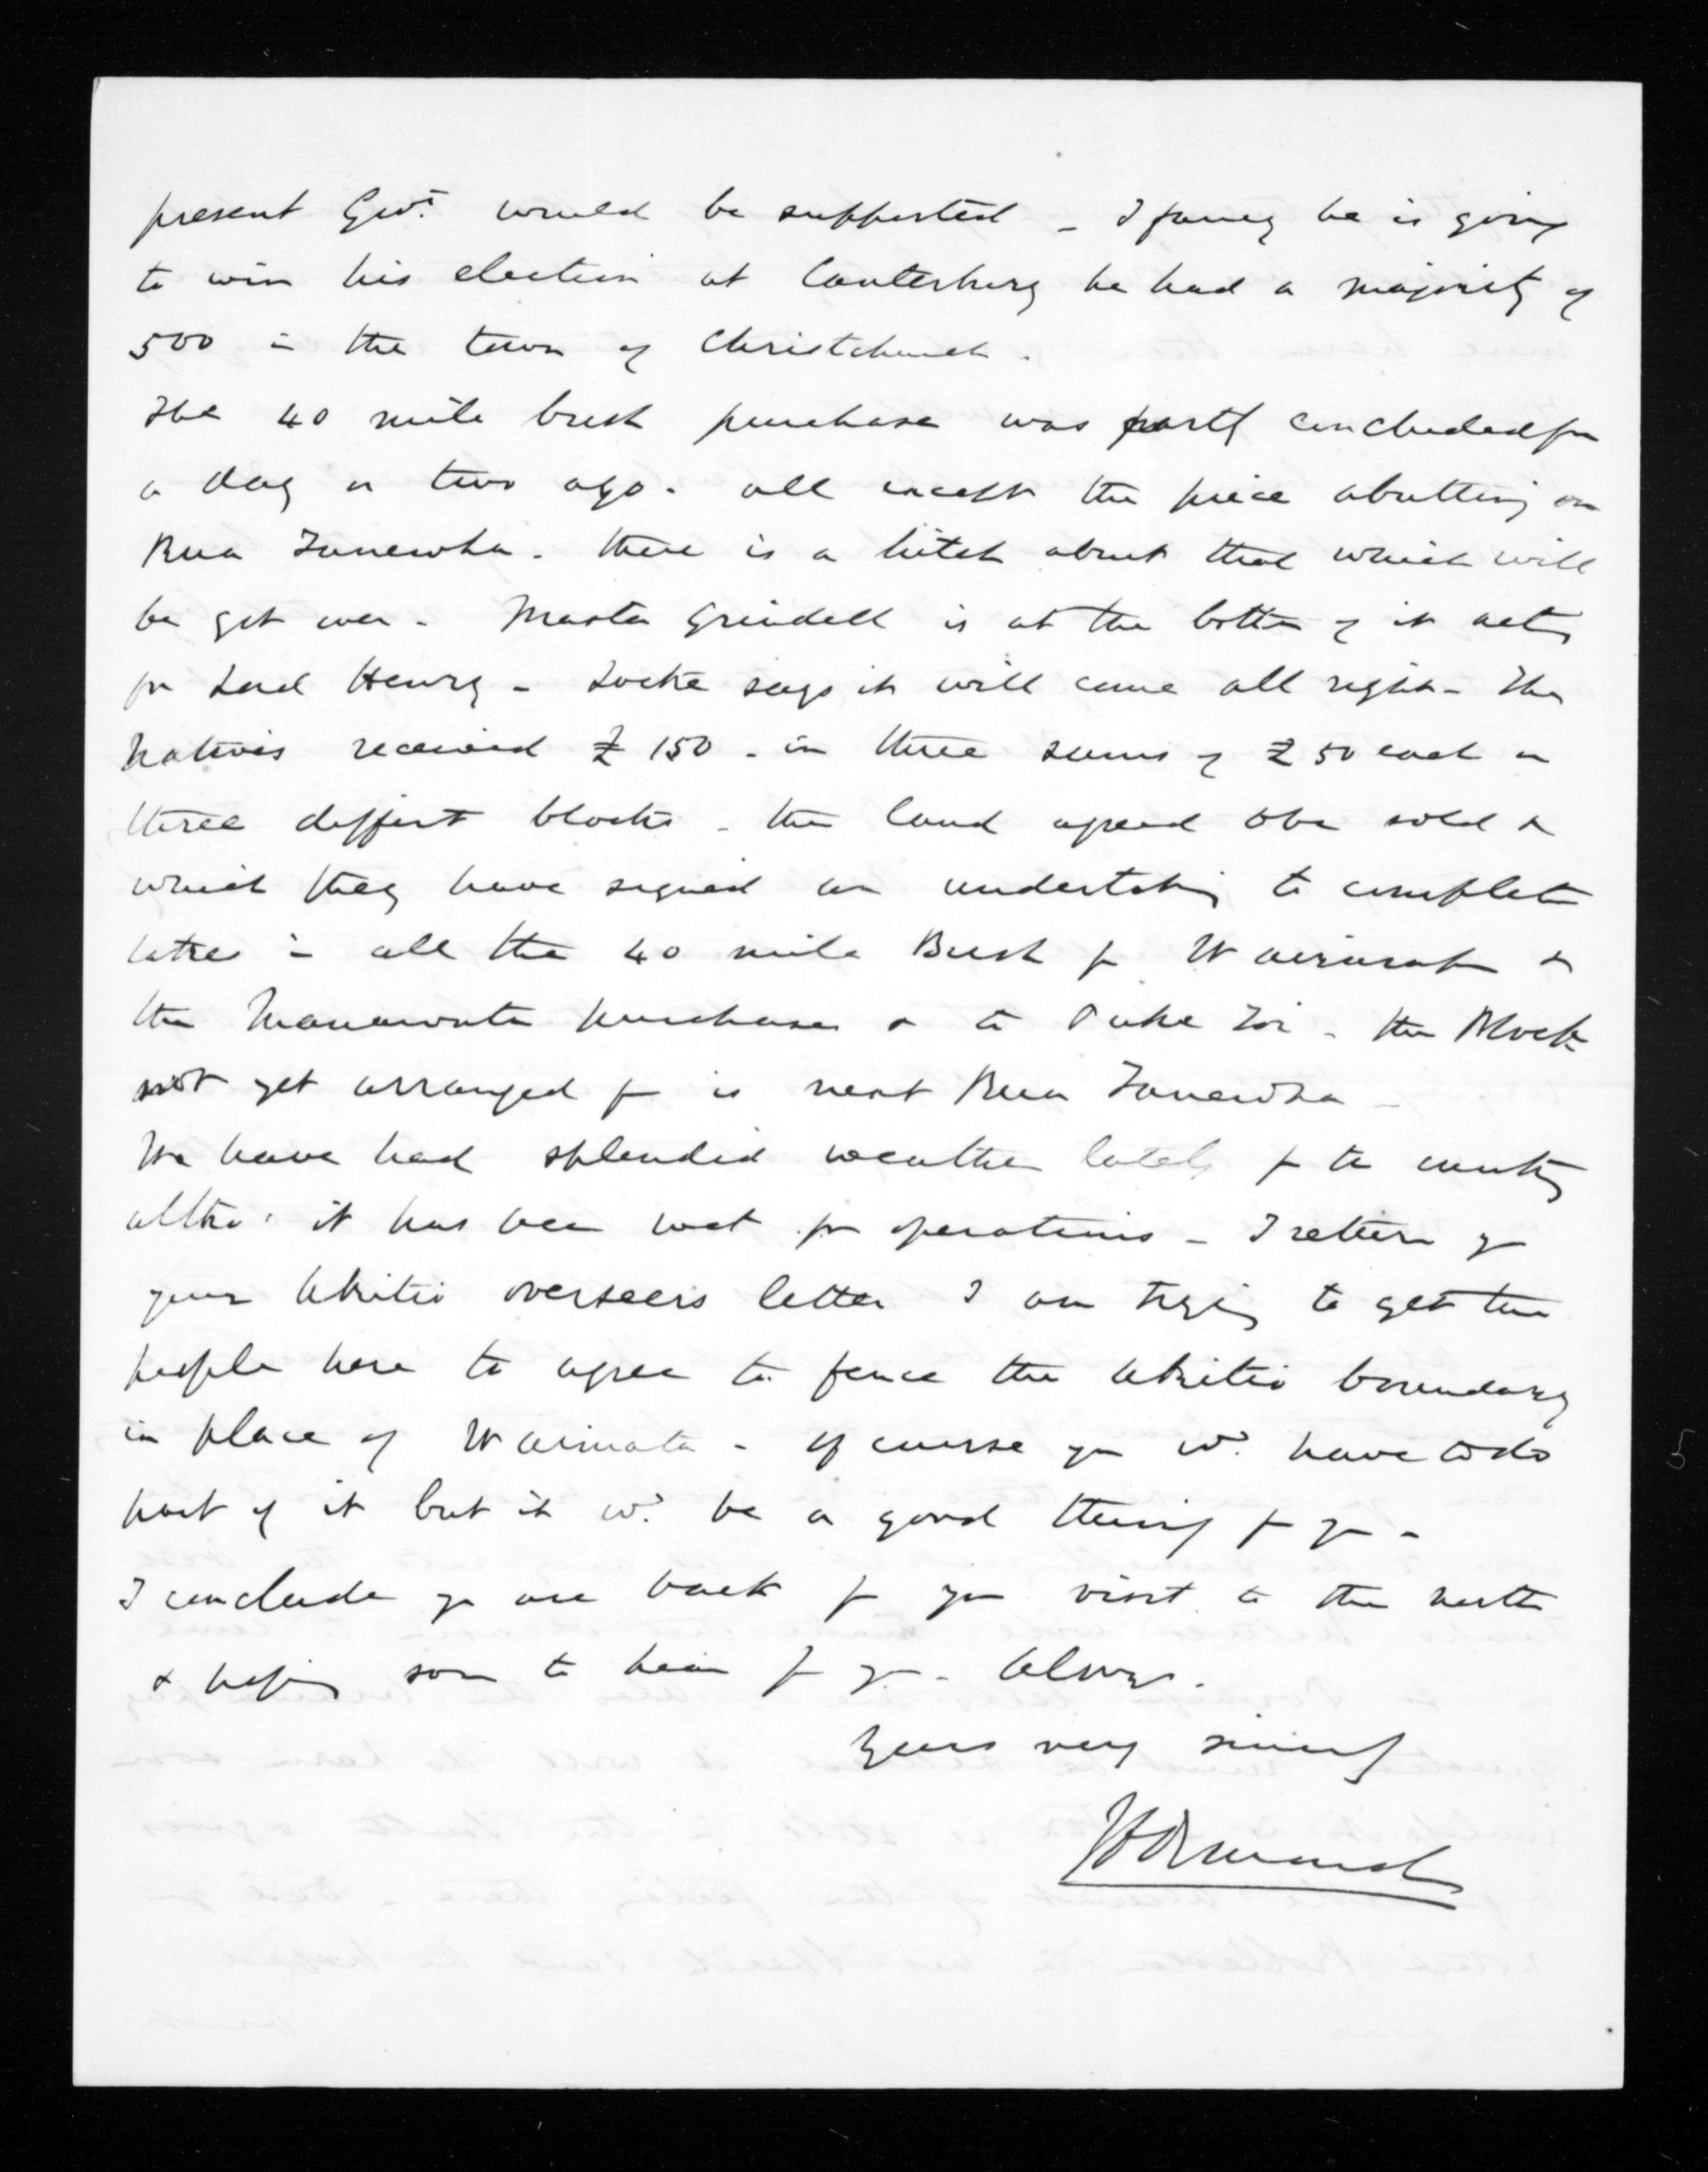 present Govt. would be supported _ I fancy he is going
to win his election at Canterbury he had a majority of
500 in the town of Christchurch.
The 40 mile bush purchase was partly concluded
a day or two ago. all except the piece abutting on
Rua Tanewha. there is a hitch about that which will
be got over. Master Grindell is at the bottom of it acting
for Lord Henry - Locke says it will come all right. The
Natives received £150 - in three sums of £50 each on
three different blocks - the land agreed to be sold &
which they have signed an undertaking to complete
takes in all the 40 mile Bush from Wairarapa &
the Manawatu purchases & to Puke Toi - the Block
not yet arranged for is next Rua Tanewha -
We have had splendid weather lately for the country
altho' it has been wet for operations - I return you
your Akitio overseers letter I am trying to get the
people here to agree to fence the Akitio boundary
in place of Waimata - of course you wd. have to do
part of it but it wd. be a good thing for you -
I conclude you are back from your visit to the north
& hoping soon to hear from you. Always.
Yours very sincerely
JD Ormond